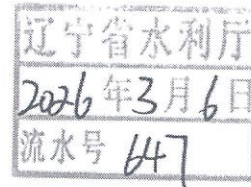 辽宁省水利厅
2026年3月6日
流水号 647